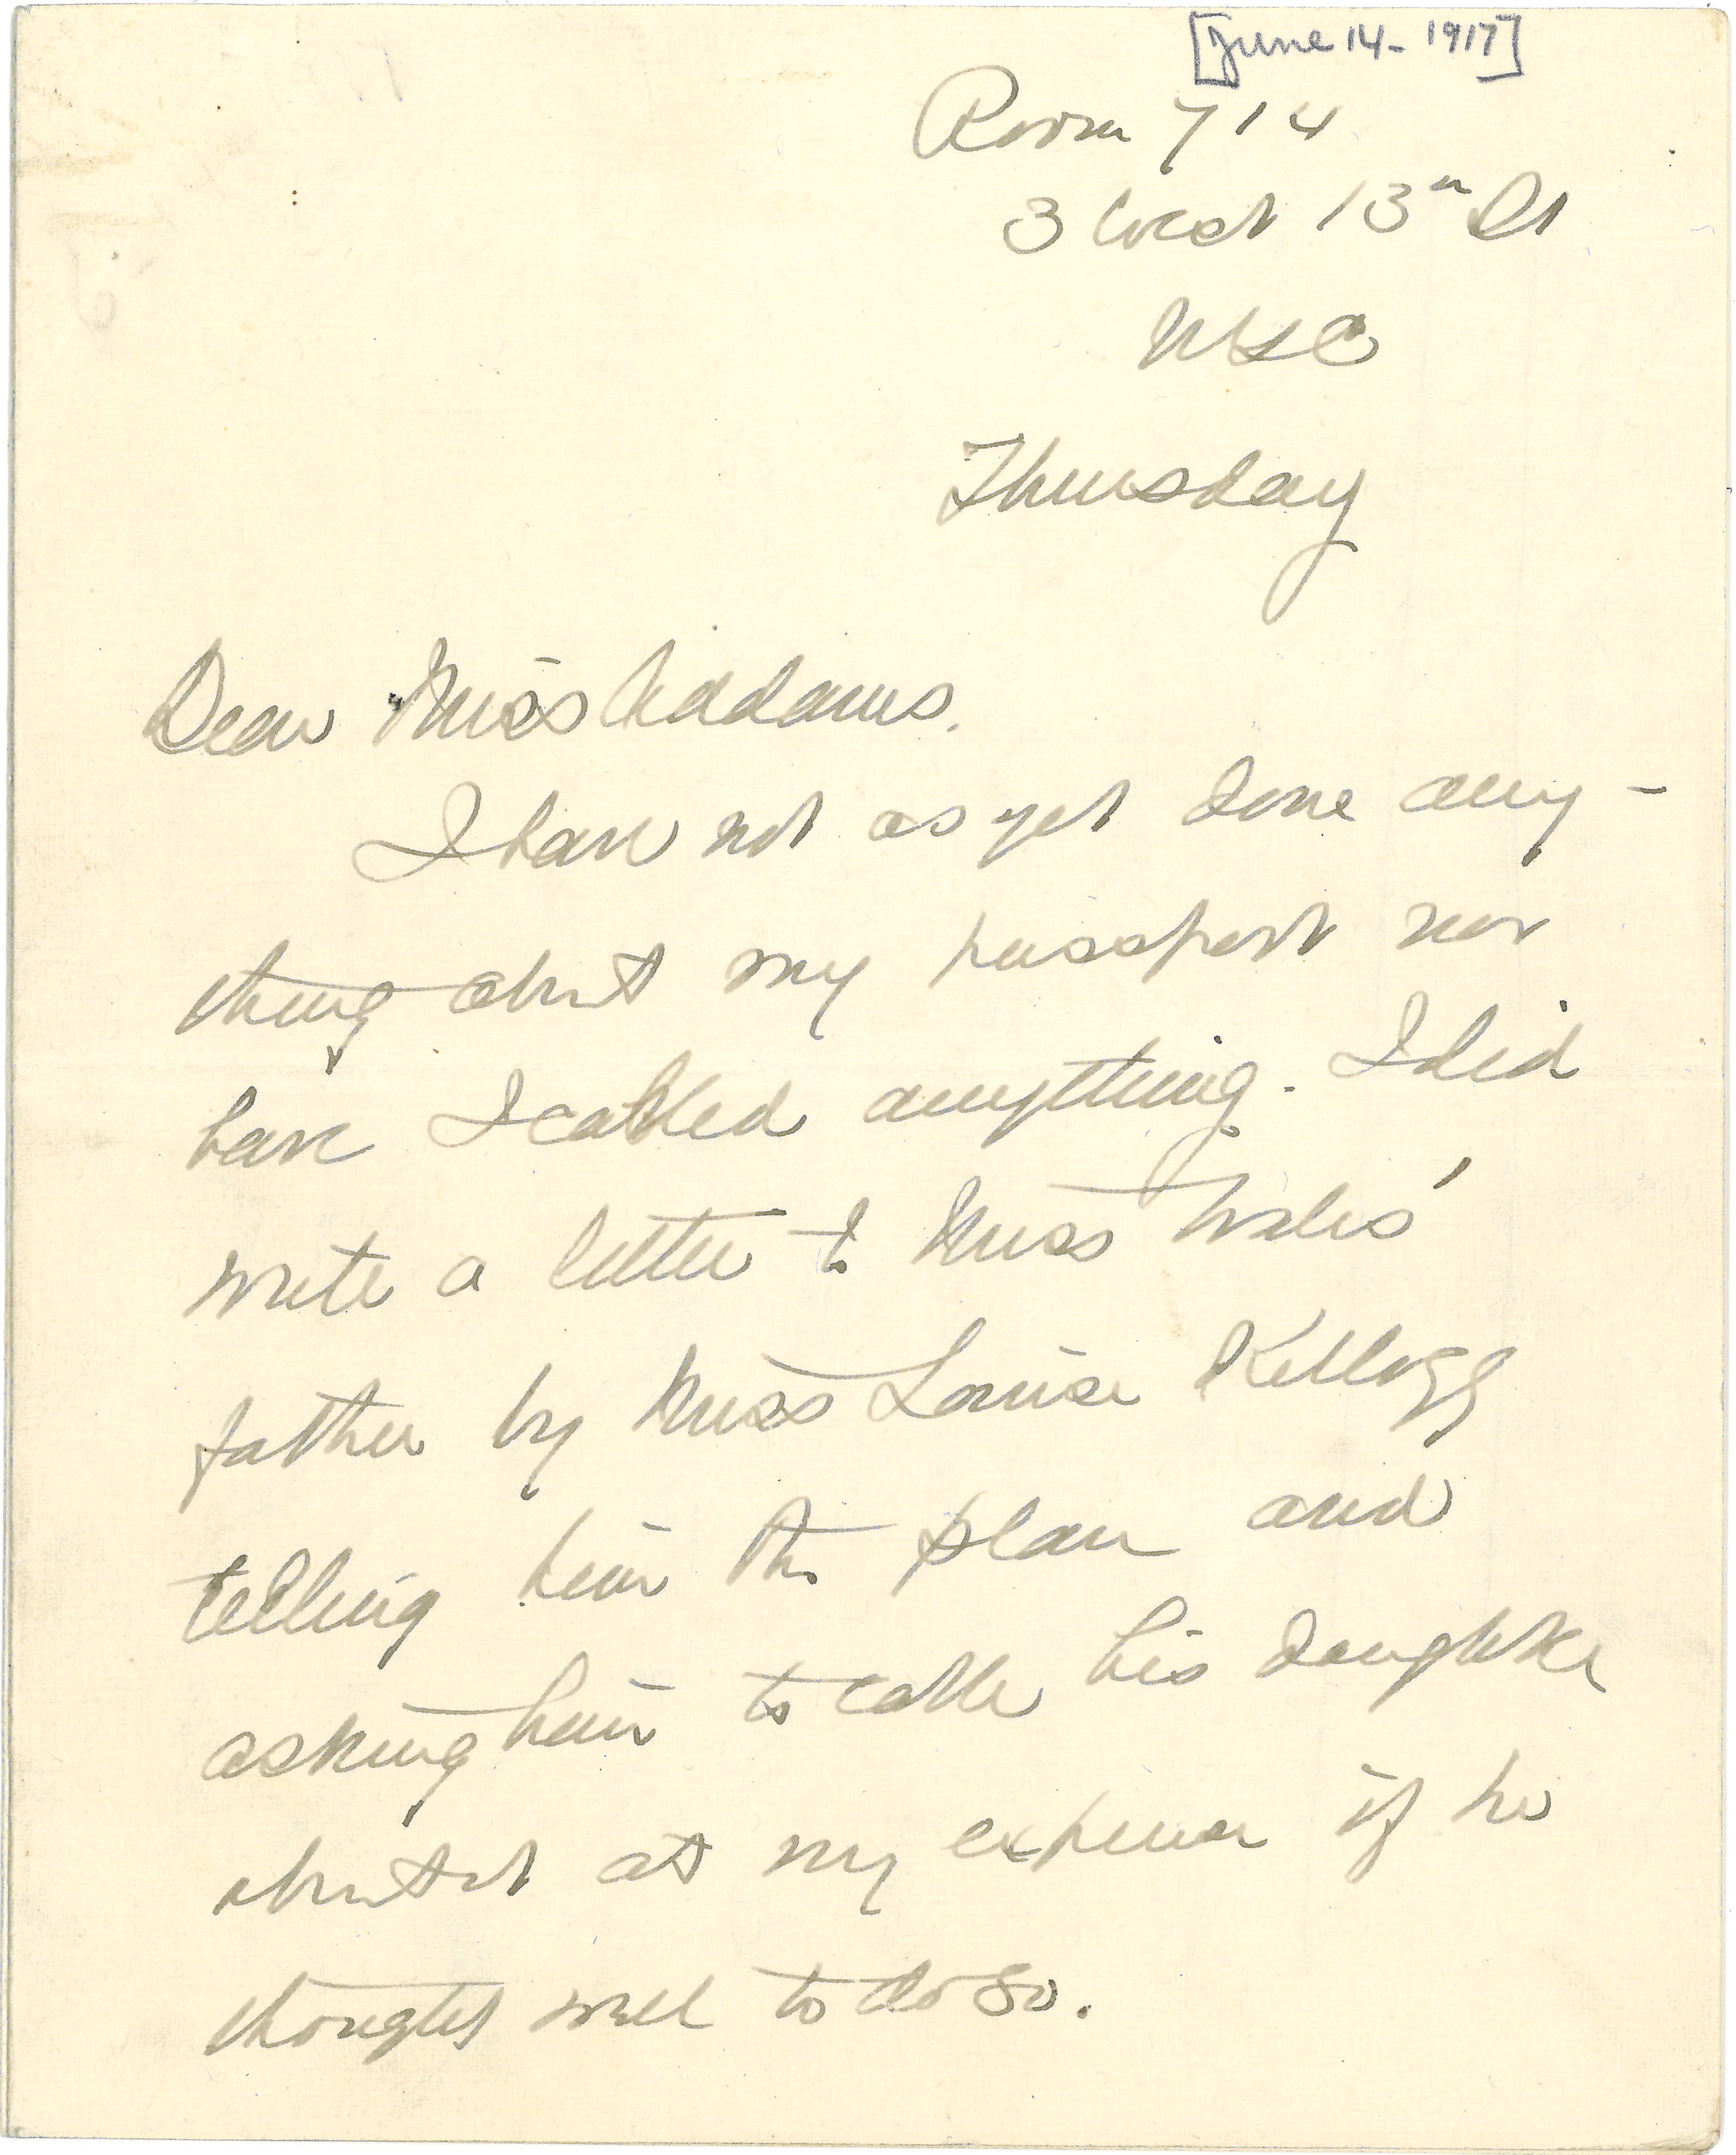 [June 14 - 1917]
Room 714
3 West 13th St
NYC
Thursday
Dear Miss Addams.
I have not as yet done any-
thing about my passport nor
have I cabled anything. I did
write a letter to Miss Wales'
father by Miss Louise Kellogg
telling him the plan and
asking him to cable his daughter
about it at my expense if he
thought well to do so.